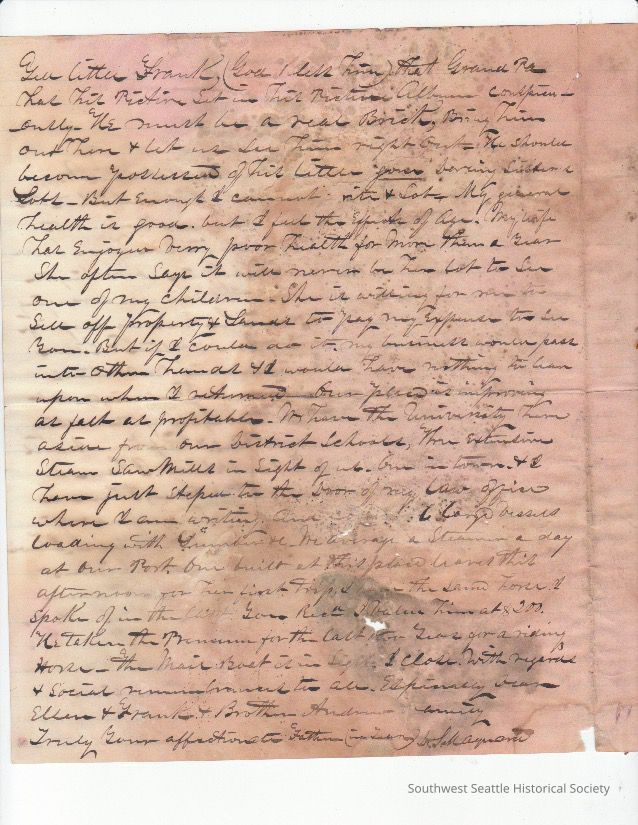 Tell little Frank, (God bless him) that Grand Pa
has his Picture Set in his Picture Album conspicu-
ously. He must be a real Brick, Bring him
out here & let us See him right out. He should
become possessed of his little
Lots - But Enough I cannot write & Sob. My general
health is good. but I feel the Effects of Age. My wife
has Enjoyed very poor health for more than a Year
She often Says it will never be her lot to See
one of my children. She is willing for me to
Sell off property & Lands to pay my Expense to See
You. But if I could do it, my business would pass
into other hands & I would have nothing to lean
upon when I returned. Our place is improving
as fast as profitable. We have the University here
aside from our District Schools, three Extensive
Steam Saw Mills in Sight of us. One in town. & I
have just Steped to the Door of my Law office
where I am writing, and large vessels
loading with Lumber &c. We average a Steamer a day
at our Port. One built at this place leaves this
afternoon for her first Trip, I the same horse I
spoke of in the last You Recd I value him at $200.
He taken the Premium for the last two Years for a riding
Horse - The Mail Boat is in Sight I close. With regards
& Social remembrances to all. Especially dear
Ellen & Frank & Brother Andrew family
Truly Your affectionate Father (in law) D. S. Maynard
Southwest Seattle Historical Society